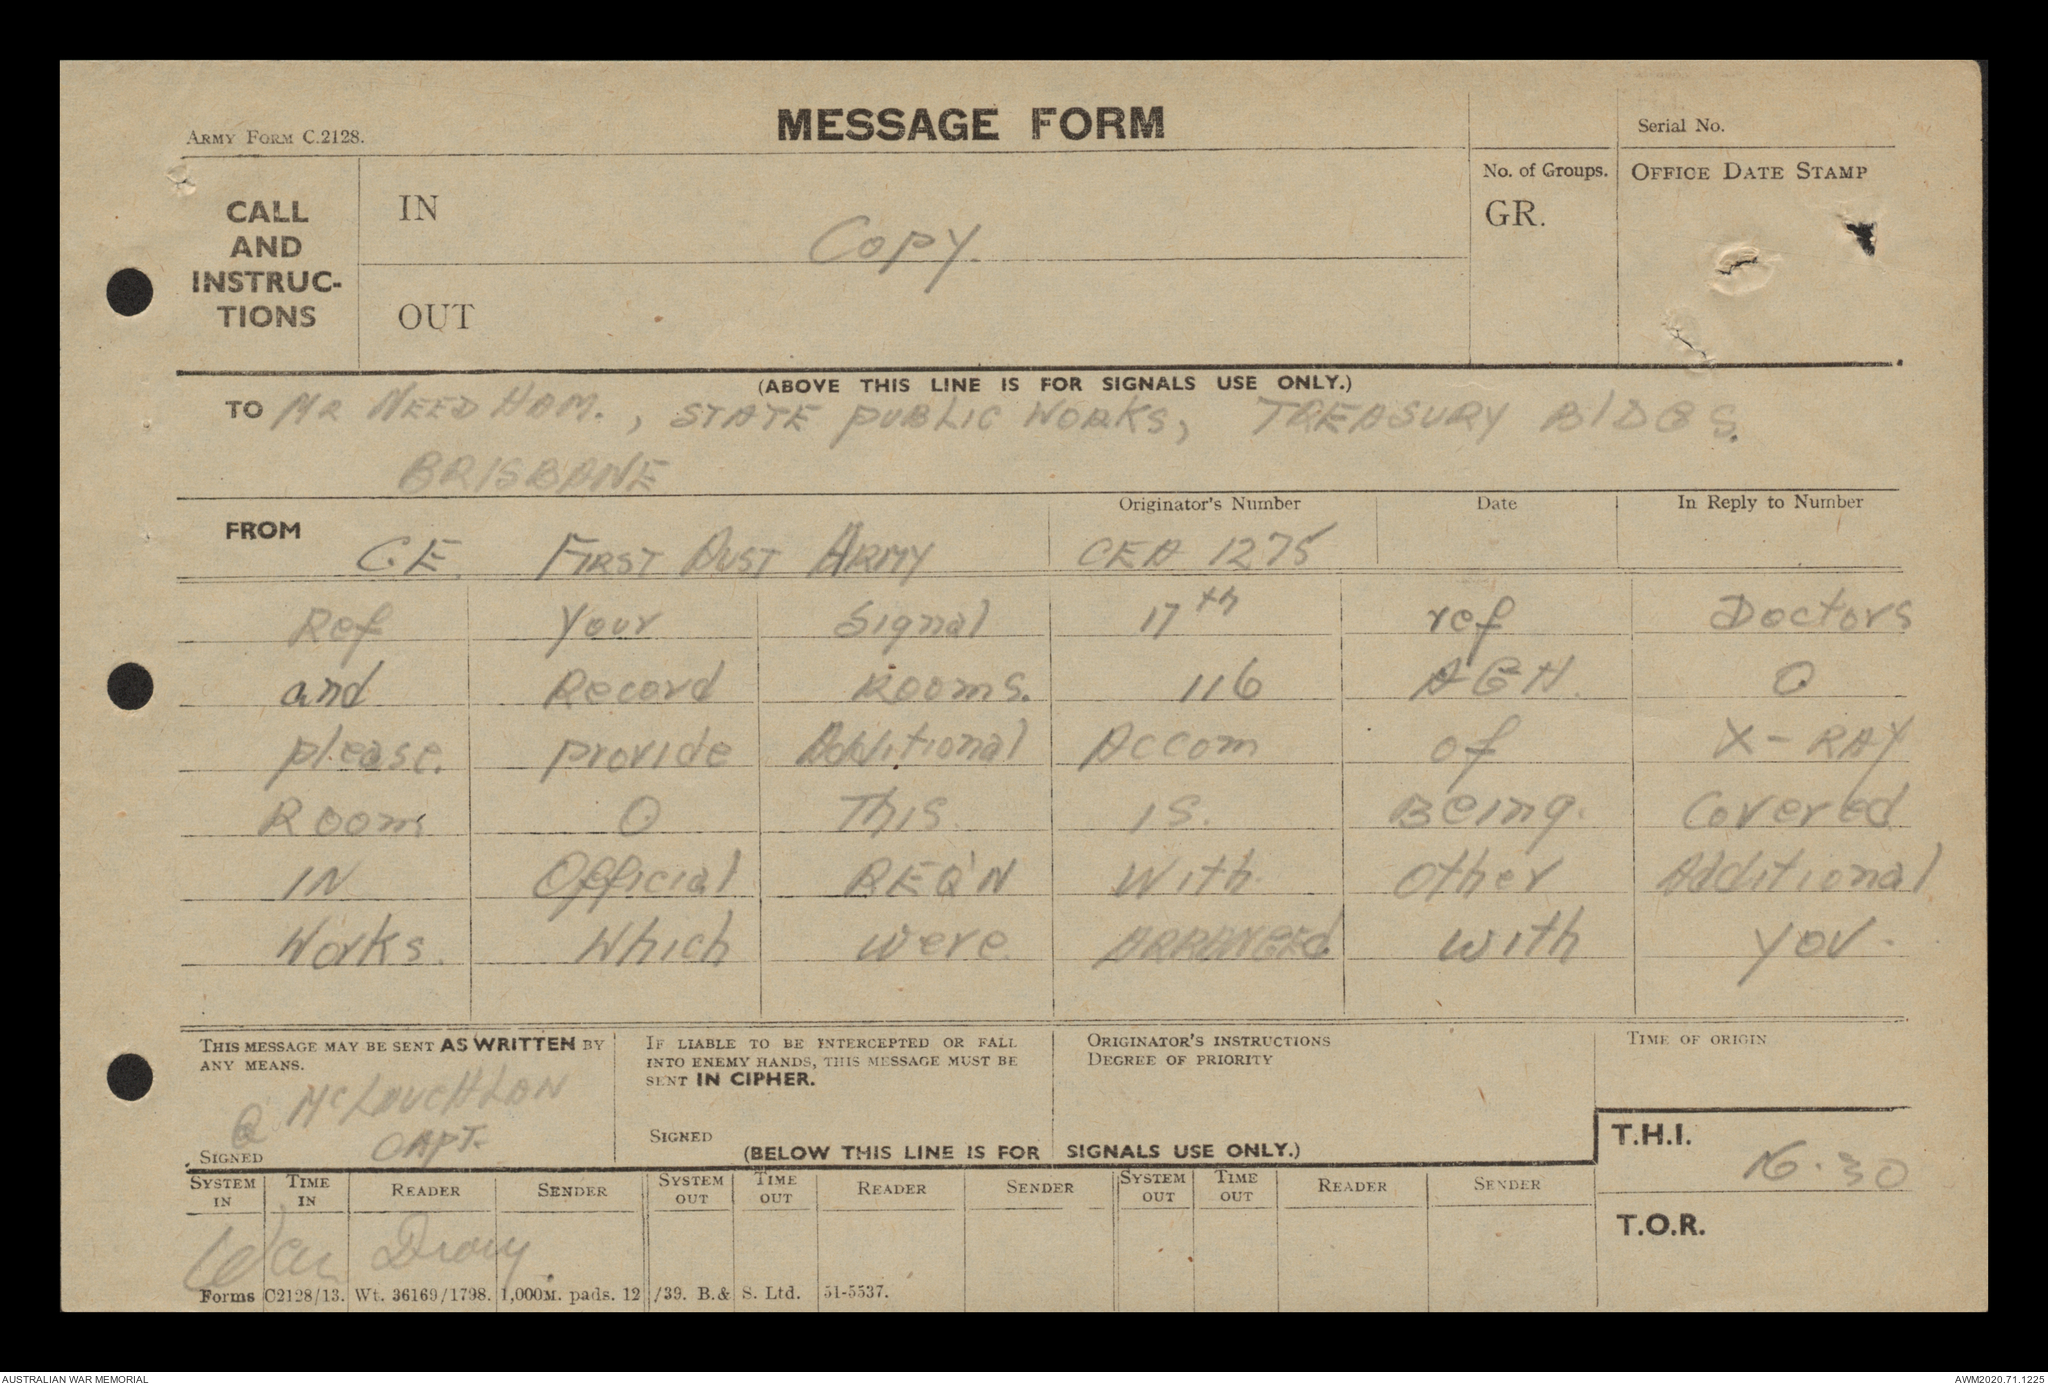 ARMY FORM C.2128.
MESSAGE FORM
Serial No.
CALL AND INSTRUC-TIONS
IN
Copy.
OUT
No. of Groups.
GR.
OFFICE DATE STAMP
(ABOVE THIS LINE IS FOR SIGNALS USE ONLY.)
TO MR NEEDHAM., STATE PUBLIC WORKS, TREASURY BLDGS.
BRISBANE
FROM
Originator's Number
Date
In Reply to Number
C.E. FIRST AUST ARMY CEA 1275
Ref your Signal 17th ref Doctors
and Record Rooms. 116 AGH. O
please. provide Additional Accom of X-RAY
Room O This. is. Being. Covered
IN Official REQ'N With. Other Additional
Works. Which were ARRANGEd. with you.
THIS MESSAGE MAY BE SENT AS WRITTEN BY
ANY MEANS.
McLAUCHLAN
CAPT.
SIGNED
IF LIABLE TO BE INTERCEPTED OR FALL
INTO ENEMY HANDS, THIS MESSAGE MUST BE
SENT IN CIPHER.
SIGNED
ORIGINATOR'S INSTRUCTIONS
DEGREE OF PRIORITY
TIME OF ORIGIN
(BELOW THIS LINE IS FOR SIGNALS USE ONLY.)
T.H.I.
16.30
T.O.R.
SYSTEM IN TIME IN READER SENDER SYSTEM OUT TIME OUT READER SENDER SYSTEM OUT TIME OUT READER SENDER
War Diary.
Forms C2128/13. Wt. 36169/1798. 1,000M. pads. 12/39. B.& S. Ltd. 51-5537.
AUSTRALIAN WAR MEMORIAL
AWM2020.71.1225